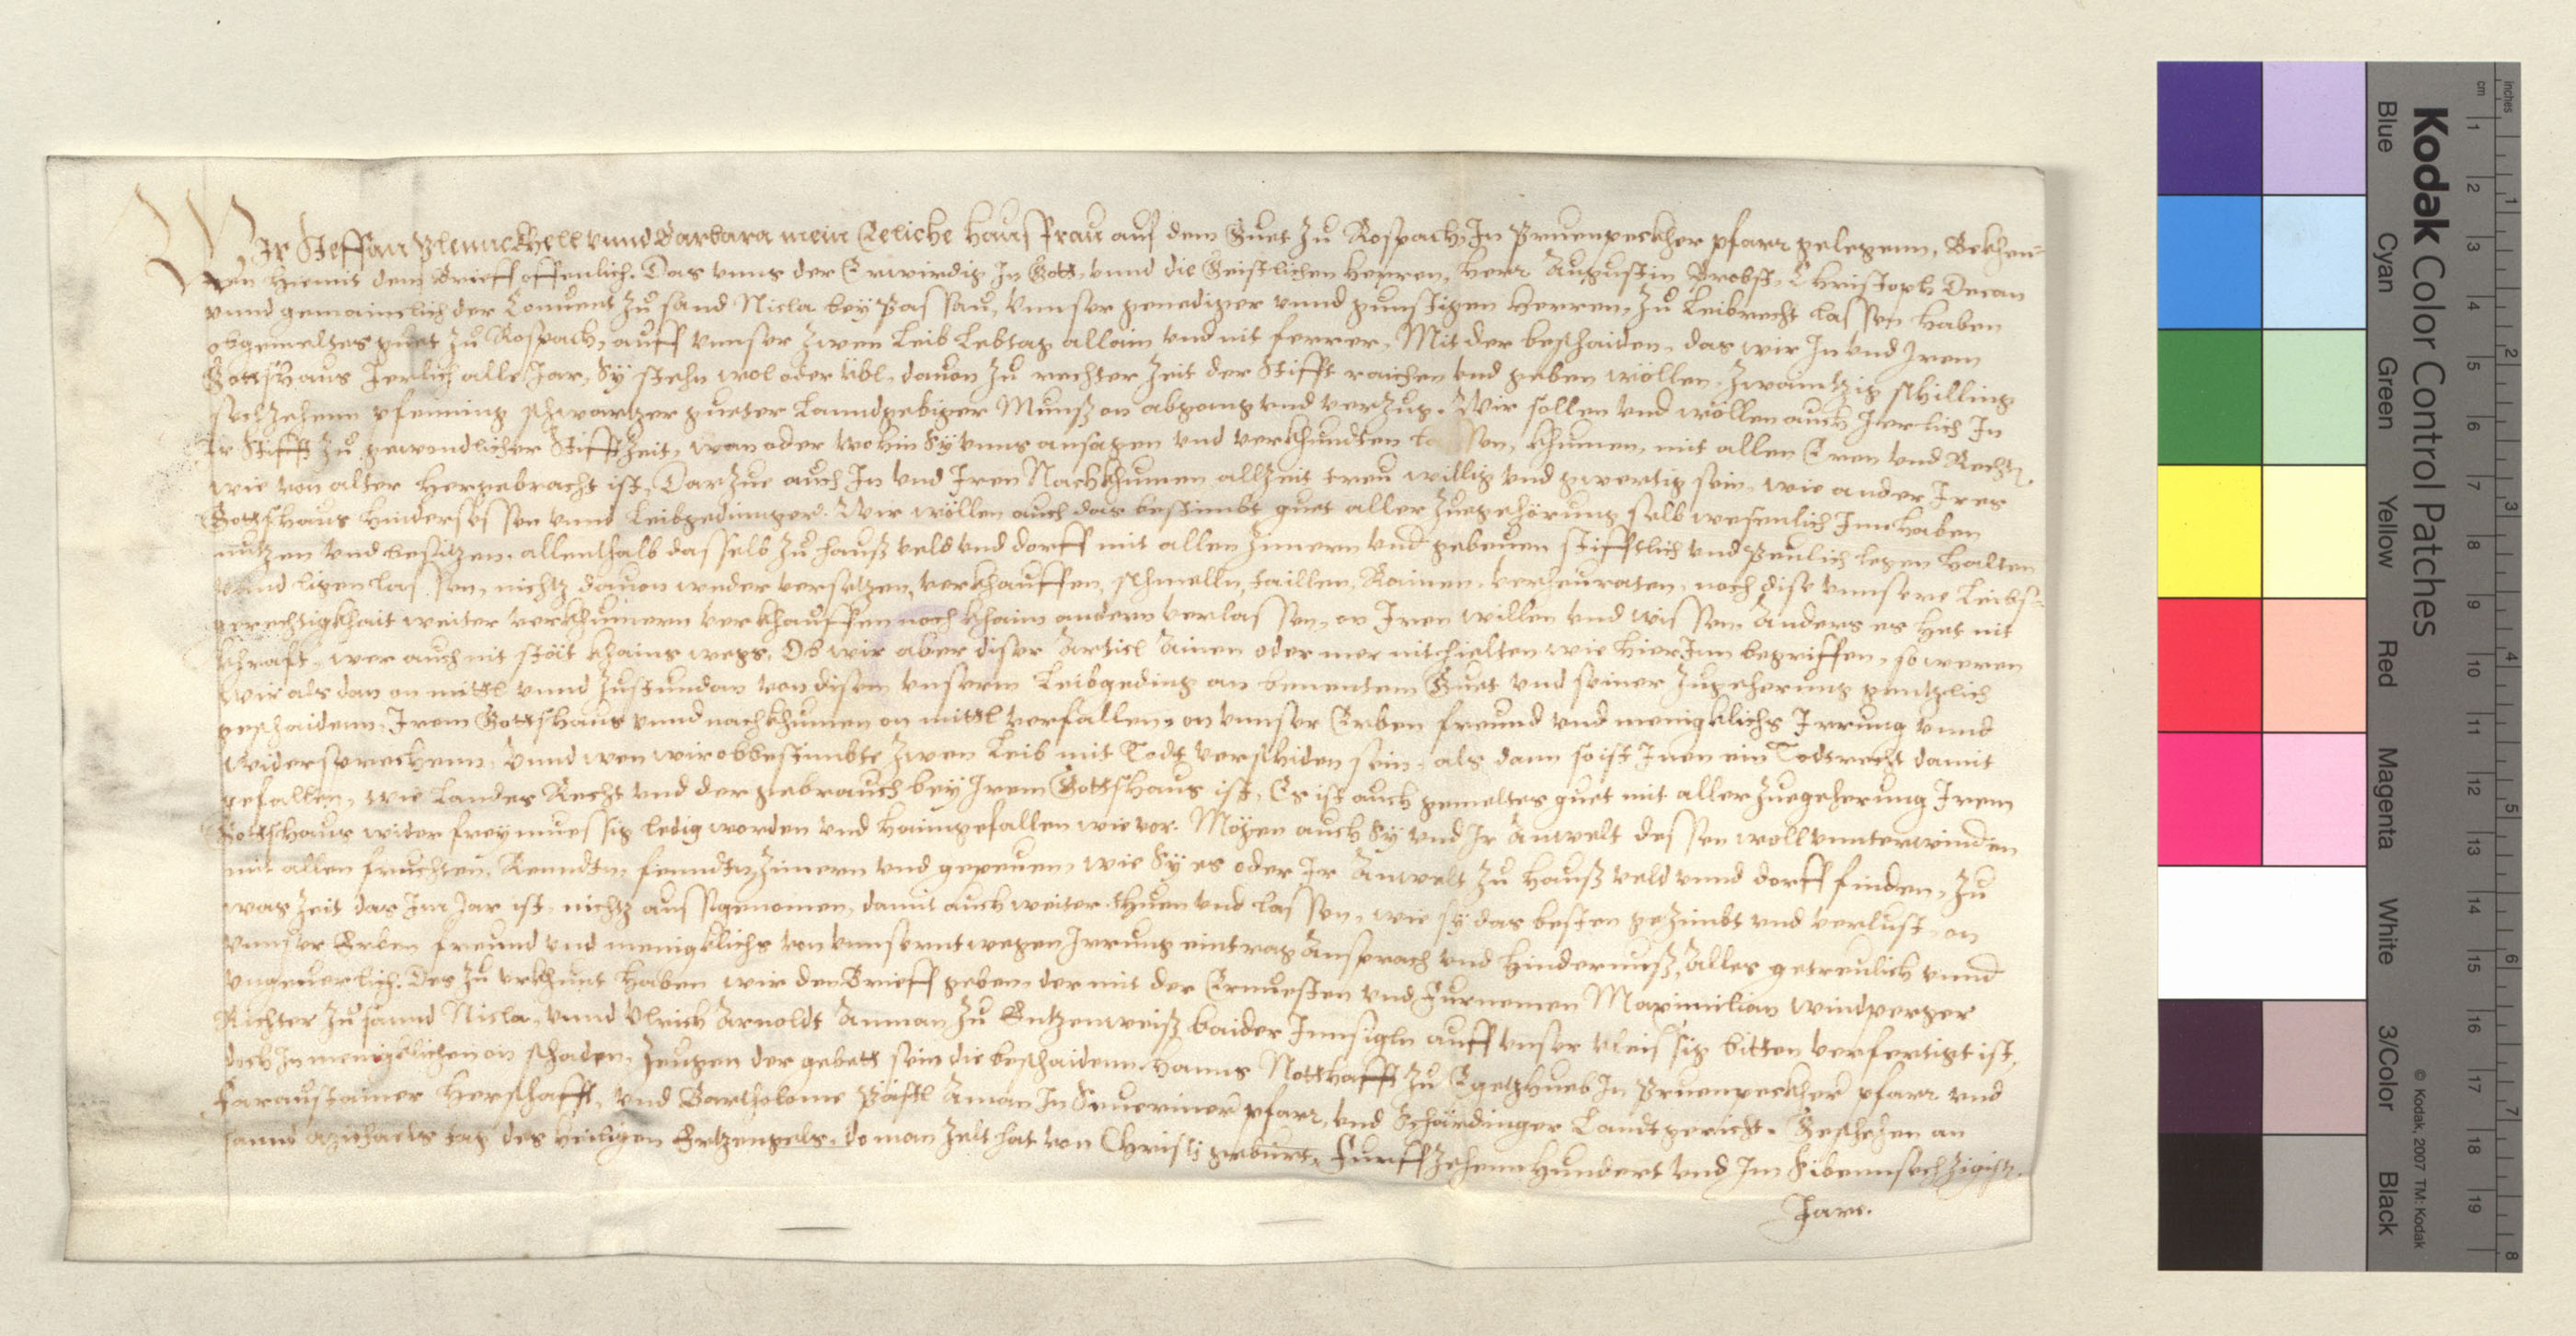 Wir Steffan Plennckhell vnnd Barbara mein Eeliche Hausfrau auf dem Guet zu Rospach, In Pruenpeckher pfarr gelegenn, Bekhen=
nen hiemit dem brieff offennlich. Das vnns der Erwirdig In Gott, vnnd die Geistlichen herren, herr Augustin Brobst, Christoph Decan
vnnd gemainclich der Conuent zu sand Nicla bey Passau, vnnser genediger vnnd gunstigen herren, zu Leibrecht lassen haben
obgemeltes guet zu Rospach, auff vnnser zwen Leib Lebtag allain vnd nit ferrer, Mit der beschaiden, das wir In vnd Irem
Gottshaus Jerlich alle Jar, Sy stehn wol oder übl, dauon zu rechter zeit der Stifft raichen vnd geben wöllen, zwaintzig schilling
sechzehenn pfenning schwartzer gueter Lanndgebiger Munß on abgang vnd verzug. Wir sollen vnd wöllen auch Jerlich In
Ir Stifft zu gewondlicher Stifftzeit, wan oder wohin Sy vnns ansagen vnd verkhundten lassen, khumen, mit allen Eren vnd Rechtn,
wie von alter hergebracht ist, Darzue auch In vnd Iren Nachkhumen allzeit treu willig vnd gwertig sein, wie ander Ires
Gottshaus hindersessen vnnd Leibgedinger. Wir wöllen auch das bestimbt guet aller zuegehörung selb wesenlich Innhaben
nutzen vnd besitzen, allenthalb dasselb zu hauß veld vnd dorff mit allen zimern vnd gebeuen stifftlich vnd Peulich legen halten
vnnd ligen lassen, nichtz dauon weder versetzen, verkhauffen, schmelln, taillen, Rainen, verheuraten, noch dise vnnsere Leibs=
gerechtigkhait weiter verkhumern verkhauffen noch khaim andern verlassen, on Iren willen vnd wissen. Anders es het nit
khraft, wer auch nit stät khains wegs, Ob wir aber diser Articl Ainen oder mer nit hielten wie hierInn begriffen, so weren
wir als dan on mittl vnnd zustundan von disem vnserm Leibgeding an benentem Guet vnd seiner zugeherung gentzlich
geschaidenn, Irem Gottshaus vnnd nachkhumen on mittl verfallen, on vnnser Erben freund vnd menigklichs Irrung vnnd
widersprechenn, Vnnd wen wir obbestimbte zwen Leib mit Todt verschiden sein, als dann so ist Inen ein Todtrecht damit
gefallen, wie Landes Recht vnd der gebrauch bey Irem Gottshaus ist, Es ist auch gemeltes guet mit aller zuegeherung Irem
Gottshaus wider frey muessig ledig worden vnd haimgefallen wie vor. Mögen auch Sy vnd Ir Anwelt dessen woll vnnterwinden
mit allen fruchten, Renndtn, fenndtn, zimern vnd gepeuen, wie Sy es oder Ir Anwelt zu hauß veld vnnd dorff finden, zu
was zeit das Im Jar ist, nichtz aussgenomen, damit auch weiter thuen vnd lassen, wie sy das besten gezimbt vnd verlust, on
vnnser Erben freund vnd menigklichs von vnnserntwegen Irrung eintrag Ansprach vnd hindernuß, Alles getreulich vnnd
vngeuerlich. Des zu vrkhunt haben wir den Brieff geben, der mit der Ernuesten vnd Furnemen Maximilian windperger
Richter zu sannd Nicla, vnnd Vlrich Arnoldt Amman zu Entzenweiß baider Innsigln auff vnser vleissig bitten verfertigt ist,
doch In menigklichen on schaden, zeugen der gebett sein die beschaidenn Hanns Notthafft zu Egelzhueb In Pruenpeckher pfarr vnd
herschafft, vnd Bartholome Aman In pfarr, vnd Schärdinger Landtgericht. Geschehen an
sannd Michaels tag des heiligen Ertzengels, do man zelt hat von Christi geburt, Funffzehenn Hundert vnd Im Sibennsechzigist.
Jare.
Kodak Color Control Patches
Blue Cyan Green Yellow Red Magenta White 3/Color Black
inches 1 2 3 4 5 6 7 8
cm 1 2 3 4 5 6 7 8 9 10 11 12 13 14 15 16 17 18 19
© Kodak, 2007 TM: Kodak